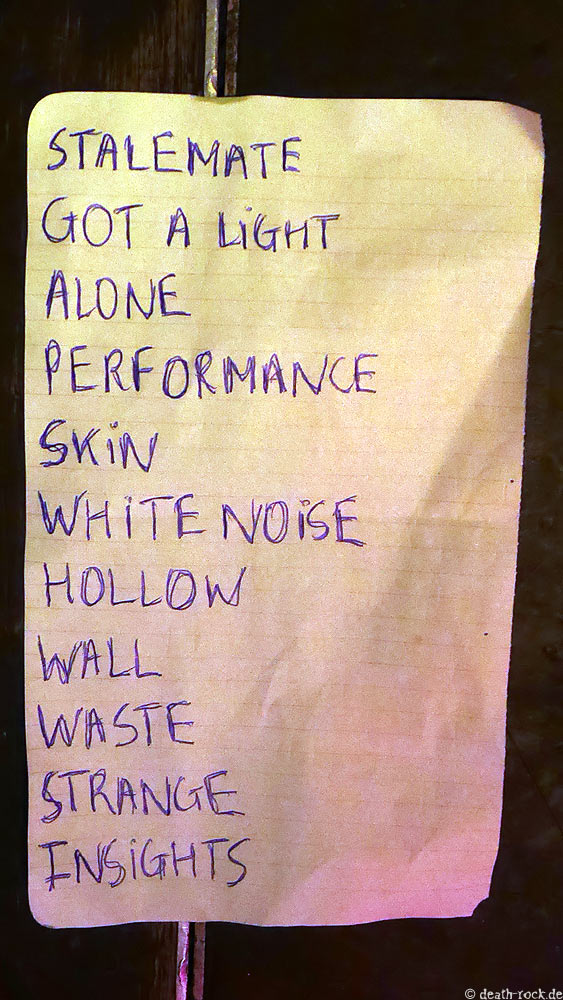 STALEMATE
GOT A LiGHT
ALONE
PERFORMANCE
SKiN
WHiTE NOiSE
HOLLOW
WALL
WASTE
STRANGE
INSiGHTS
© death-rock.de